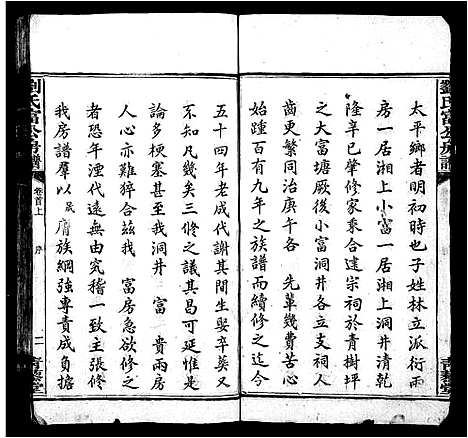 劉氏富公房譜
太平鄉者明初時也子姓林立派衍兩
房一居湘上小富一居湘上洞井清乾
隆辛已肇修家乘合建宗祠於青樹坪
之大富塘厥後小富洞井各立支祠人
齒更繁同治庚午各 先輩幾費苦心
踵百有九年之族譜而續修之迄今
五十四年老成代謝其間生娶卒葬又
不知凡幾矣三修之議其曷可延惟是
論多梗塞甚至我洞井 富 貴兩房
人心亦難猝合茲我 富房急欲修
者恐年湮代遠無由究稽一致主張修
我房譜羣以 膺族綱強專責成負擔
劉氏富公房譜
卷首上
序
二
青藜堂